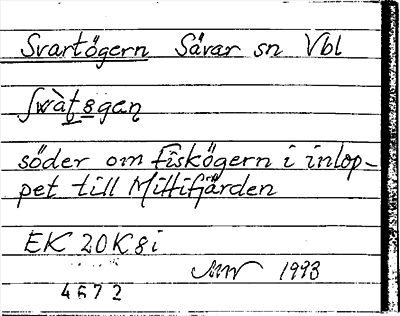 Svartögern Sävar sn Vbl
söder om Fiskögern i inlop-
pet till Mittifjärden
EK 20K8i
MW 1993
4672